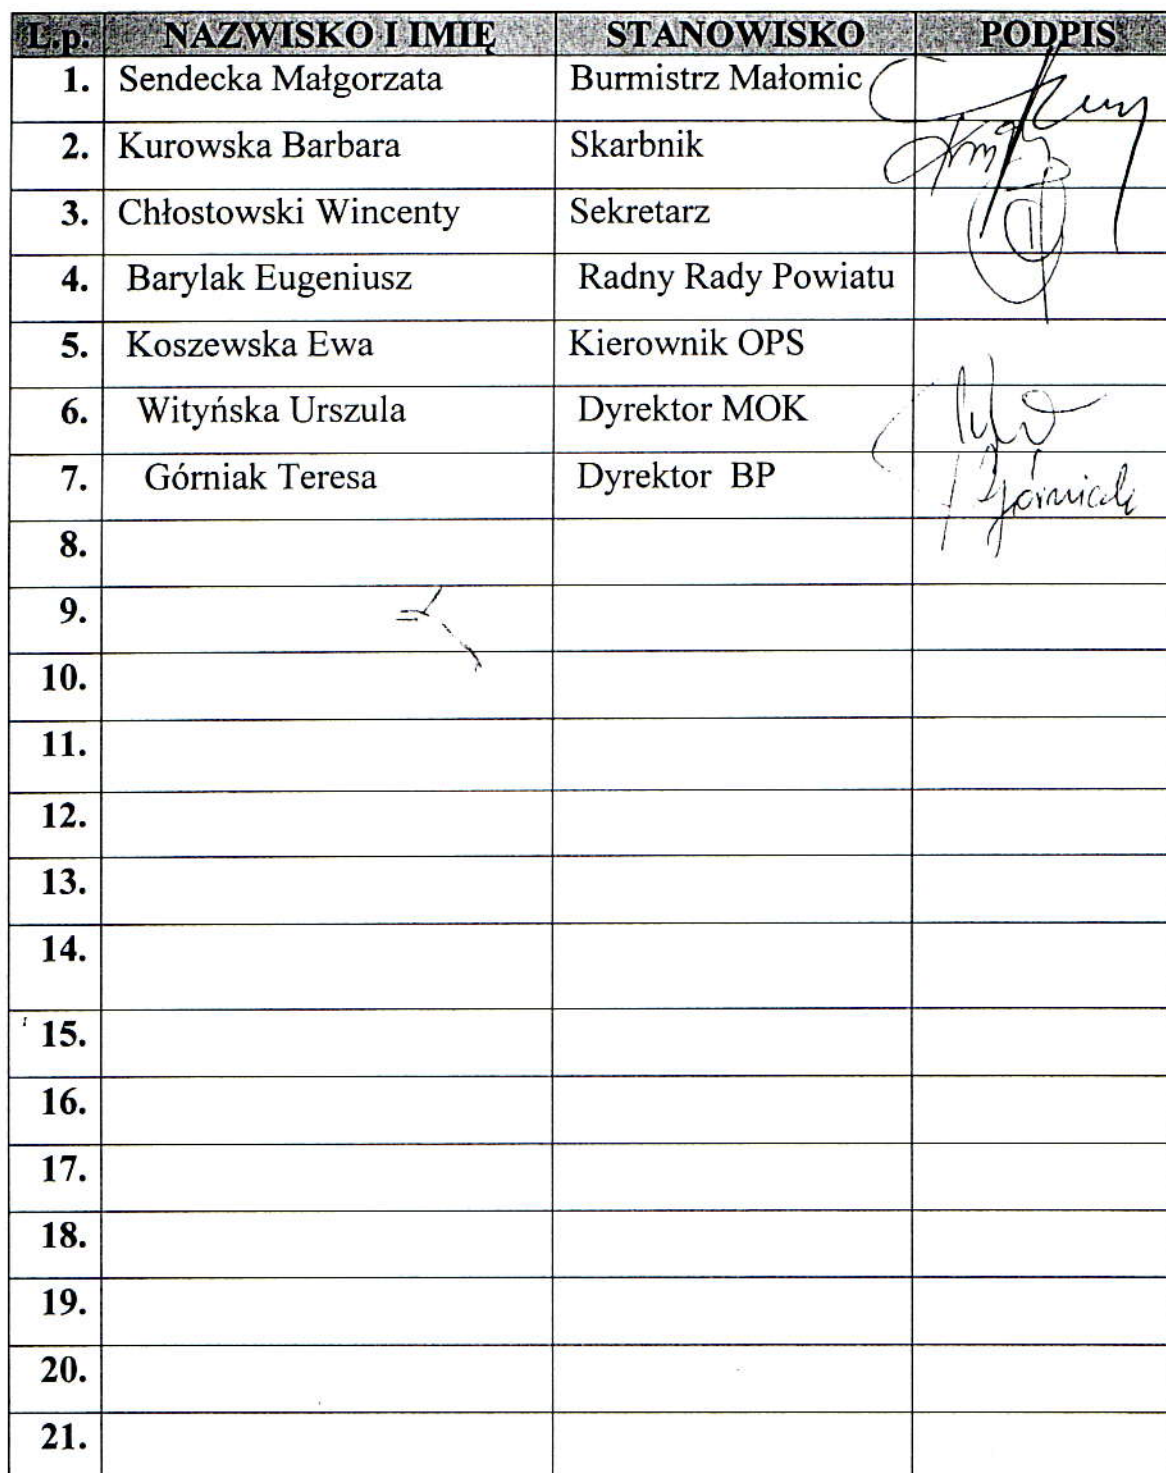 L.p. NAZWISKO I IMIĘ STANOWISKO PODPIS
1. Sendecka Małgorzata Burmistrz Małomic
2. Kurowska Barbara Skarbnik
3. Chłostowski Wincenty Sekretarz
4. Barylak Eugeniusz Radny Rady Powiatu
5. Koszewska Ewa Kierownik OPS
6. Wityńska Urszula Dyrektor MOK
7. Górniak Teresa Dyrektor BP Górniak
8.
9.
10.
11.
12.
13.
14.
15.
16.
17.
18.
19.
20.
21.